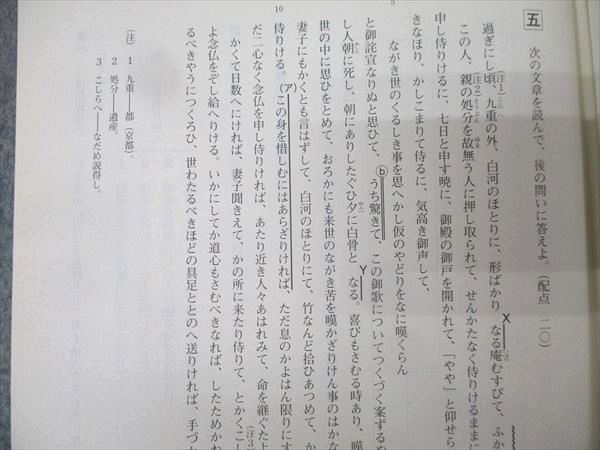 五 次の文章を読んで、後の問いに答えよ。(配点 二〇)
過ぎにし頃、九重の外、白河のほとりに、形ばかりなる庵むすびて、ふか
(注1)
X
この人、親の処分を故無う人に押し取られて、せんかたなく侍りけるままに
(注2)
申し侍りけるに、七日と申す暁に、御殿の御戸を開かれて、「やや」と仰せら
きなほり、かしこまりて侍るに、気高き御声して、
5
ながき世のくるしき事を思へかし仮のやどりをなに嘆くらん
と御託宣なりぬと思ひて、うち驚きて、この御歌についてつくづく案ずるや
ⓑ
し人朝に死し、朝にありしたぐひ夕に白骨となる。喜びもさむる時あり、嘆
Y
世の中に思ひをとめて、おろかにも来世のながき苦を嘆かざりけん事のはかな
妻子にもかくとも言はずして、白河のほとりにて、竹なんど拾ひあつめて、か
侍りける。この身を惜しむにはあらざりければ、ただ息のかよはん限りにす
(ア)
10
だ二心なく念仏を申し侍りければ、あたり近き人々あはれみて、命を継ぐたよ
かくて日数へにければ、妻子聞きえて、かの所に来たり侍りて、とかくこし
(注3)
よ念仏をぞし給へりける。いかにしてか道心もさむべきなれば、したためかね
るべきやうにつくろひ、世わたるべきほどの具足ととのへ送りければ、手づか
(注) 1 九重――都(京都)。
2 処分――遺産。
3 こしらへ――なだめ説得し。